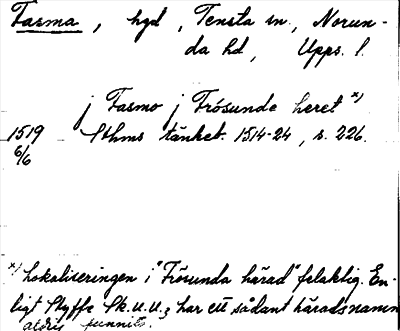 Fasma, hgd, Tensta sn., Norun-
da hd, Upps. l.
j Fasmo j Frösunde heret x)
1519 Sthms tänkeb. 1514-24, s. 226.
6/6
x) Lokaliseringen i "Frösunda härad" felaktig. En-
ligt Styffe Sk.U.U.3 har ett sådant häradsnamn
aldrig funnits.